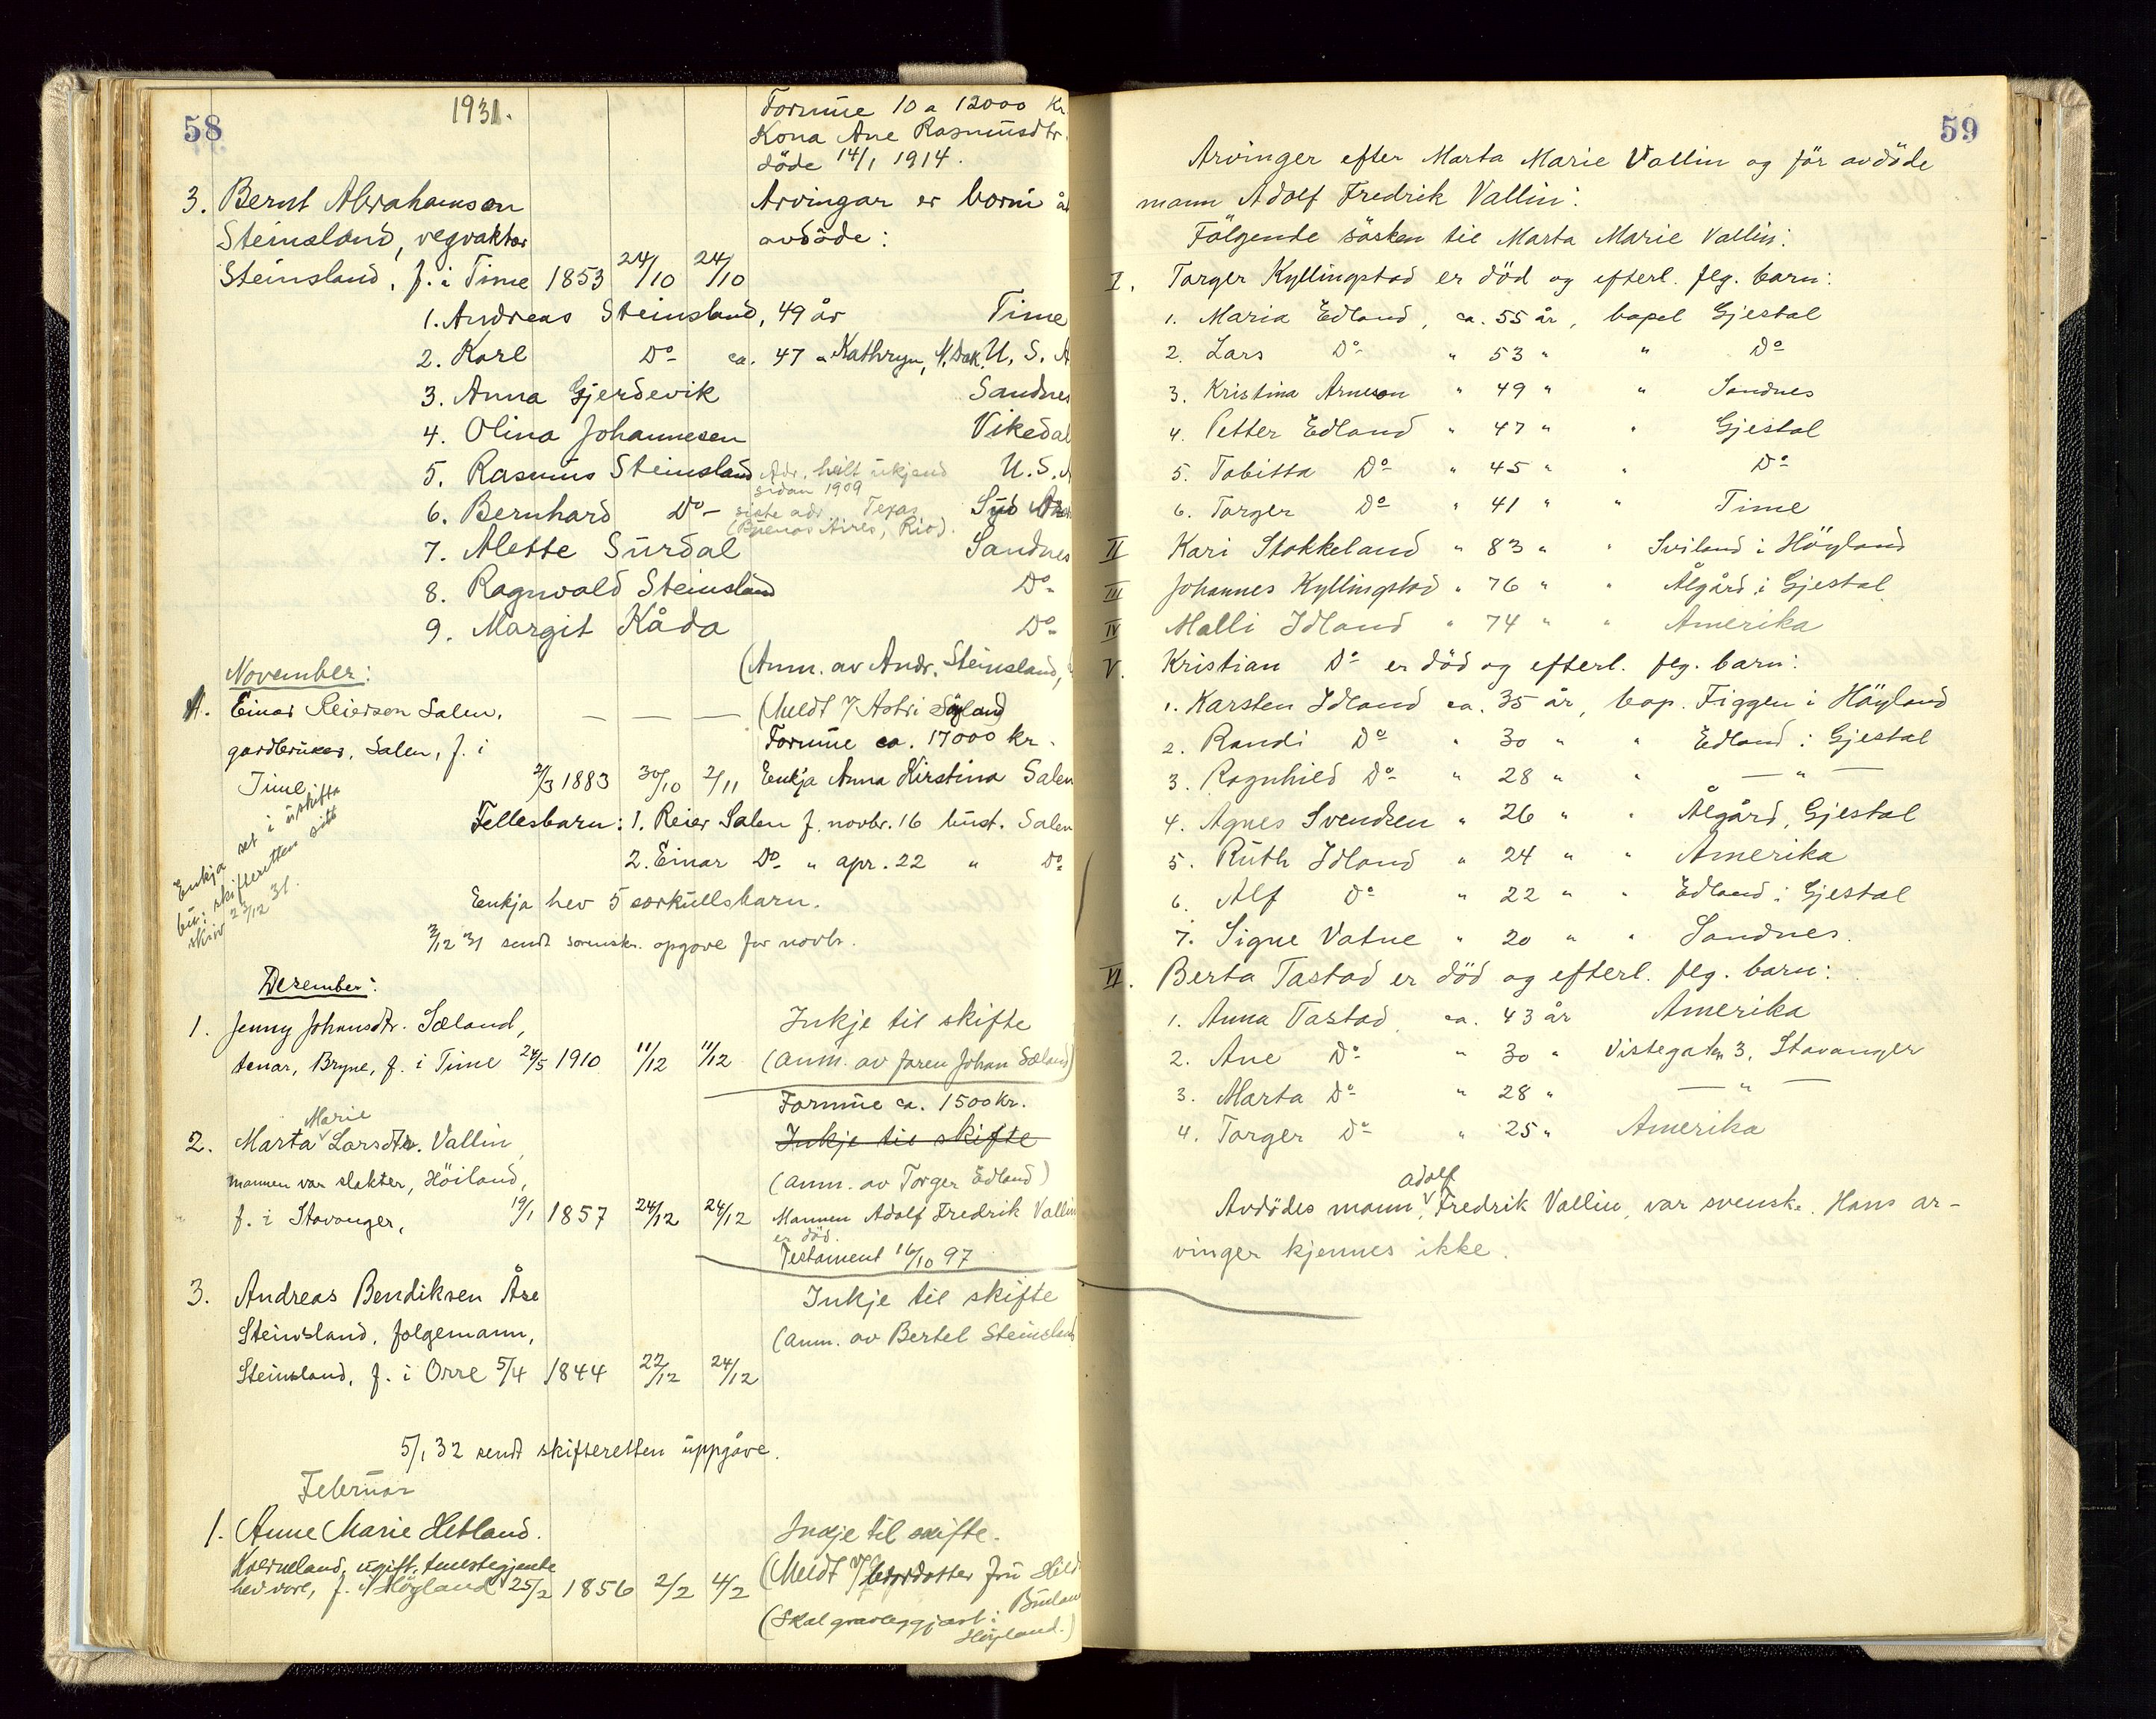 58
1931.
Formue 10 a 12000 Kr.
Kona Ane Rasmusdtr.
döde 14/1 1914.
3. Bernt Abrahamsen
Steinsland, vegvaktar
Steinsland, f. i Time 1853 24/10 24/10
Arvingar er born åt
avdöde:
1. Andreas Steinsland, 49 år Time
2. Karl Do- ca. 47 " Kathryn, N. Dak. U. S. A
3. Anna Gjerdevik Sandnes
4. Olina Johannesen Vikedal
5. Rasmus Steinsland Adr. heilt ukjend sidan 1909 U. S. A
6. Bernhard Do- siste adr. Texas (Buenos Aires, Rio). Syd Am
7. Alette Surdal Sandnes
8. Ragnvald Steinsland Do-
9. Margit Kåda Do-
(Anm. av Andr. Steinsland,
November:
1. Einar Reierson Salen, — — — (Meldt v/ Astri
gardbrukar, Salen, f. i Formue ca. 17000 kr.
Time 2/3 1883 30/10 2/11 Enkja Anna Kirstina Salen
Fellesbarn: 1. Reier Salen f. novbr. 16 hust. Salen
2. Einar Do- " apr. 22 " Do-
Enkja hev 5 særkullsbarn.
Enkja set i uskifta
bu: skifteretten sitt
skriv 23/12 31.
3/12 31 sendt sorenskr. opgave for novbr.
Desember:
1. Jenny Johansdtr. Sæland, Inkje til skifte
tenar, Bryne, f. i Time 24/5 1910 11/12 11/12 (anm. av faren Johan Sæland)
Formue ca. 1500 kr.
Marie
2. Marta Larsdtr. Vallin, Inkje til skifte
mannen var slakter, Höiland, (anm. av Torger Edland)
f. i Stavanger, 19/1 1857 24/12 24/12 Mannen Adolf Fredrik Vallin
er död.
Testament 16/10 97
3. Andreas Bendiksen Åse Inkje til skifte
Steinsland, folgemann, (anm. av Bertel Steinsland
Steinsland, f. i Orre 5/4 1844 22/12 24/12
5/1 32 sendt skifteretten uppgåve.
Februar
1. Anne Marie Hetland. Inkje til skifte.
Kverneland, ugift, tenestegjente (Meldt v/ brordotter fru Hild
hev vore, f. i Höyland 25/2 1856 2/2 4/2
(Skal gravleggjast i
Höyland.)
59
Arvinger efter Marta Marie Vallin og för avdöde
mann Adolf Fredrik Vallin:
Fölgende sösken til Marta Marie Vallin:
I. Torger Kyllingstad er död og efterl. flg. barn:
1. Maria Edland, ca. 55 år, bopel Gjestal
2. Lars Do- " 53 " " Do-
3. Kristina Arneson " 49 " " Sandnes
4. Petter Edland " 47 " " Gjestal
5. Tobitta Do- " 45 " " Do-
6. Torger Do- " 41 " " Time
II Kari Stokkeland " 83 " " Sviland i Höyland
III Johannes Kyllingstad " 76 " " Ålgård i Gjestal
IV Malli Idland " 74 " " Amerika
V. Kristian Do- er död og efterl. flg. barn:
1. Karsten Idland ca. 35 år, bop. Figgen i Höyland
2. Randi Do- " 30 " " Edland i Gjestal
3. Ragnhild Do- " 28 " " — " —
4. Agnes Svendsen " 26 " " Ålgård, Gjestal
5. Ruth Idland " 24 " " Amerika
6. Alf Do- " 22 " " Edland i Gjestal
7. Signe Vatne " 20 " " Sandnes.
VI. Berta Tastad er död og efterl. flg. barn:
1. Anna Tastad, ca. 43 år Amerika
2. Ane Do- " 30 " Vistegaten 3, Stavanger
3. Marta Do- " 28 " — " —
4. Torger Do- " 25 " Amerika
adolf
Avdödes mann, Fredrik Vallin, var svenske. Hans ar-
vinger kjennes ikke.